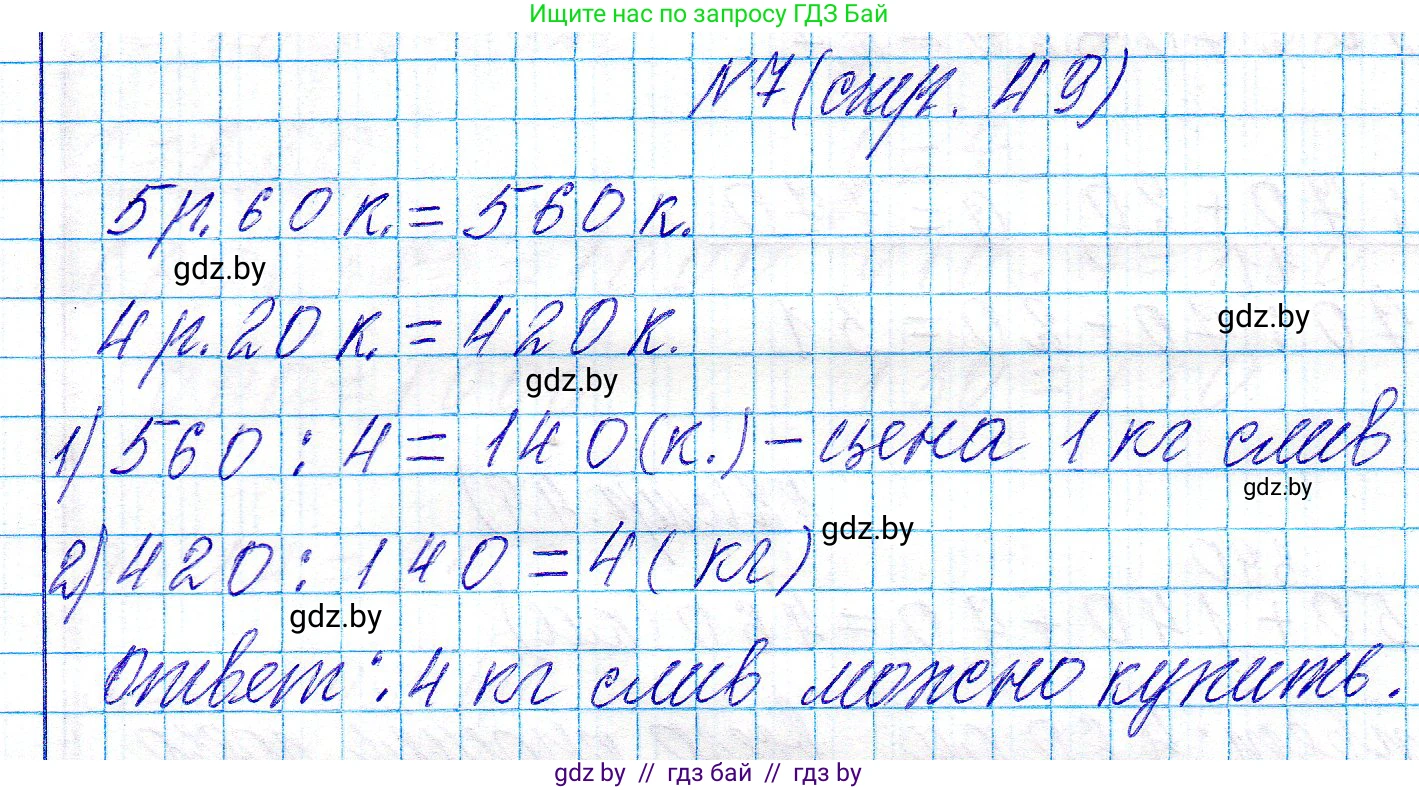 Ищите нас по запросу ГДЗ Бай
№7 (стр. 49)
5 р. 60 к. = 560 к.
gdz.by
4 р. 20 к. = 420 к.
gdz.by
gdz.by
1) 560 : 4 = 140 (к.) – цена 1 кг слив
gdz.by
2) 420 : 140 = 4 (кг)
gdz.by
gdz.by
ответ: 4 кг слив можно купить.
gdz by // гдз бай // гдз by